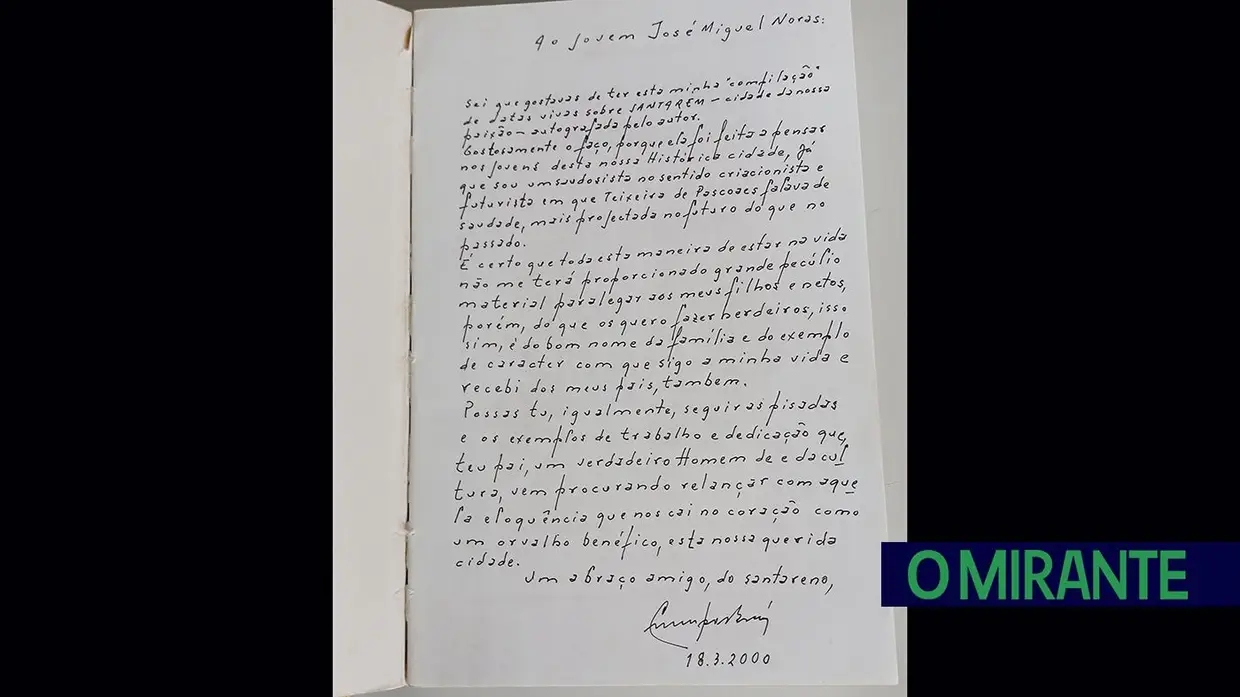 Ao jovem José Miguel Noras:
Sei que gostavas de ter esta minha "compilação"
de datas vivas sobre SANTARÉM - cidade da nossa
paixão - autografada pelo autor.
Gostosamente o faço, porque ela foi feita a pensar
nos jovens desta nossa Histórica cidade, já
que sou um saudosista no sentido criacionista e
futurista em que Teixeira de Pascoaes falava de
saudade, mais projectada no futuro do que no
passado.
É certo que toda esta maneira de estar na vida
não me terá proporcionado grande pecúlio
material para legar aos meus filhos e netos,
porém, do que os quero fazer herdeiros, isso
sim, é do bom nome da família e do exemplo
de caracter com que sigo a minha vida e
recebi dos meus pais, tambem.
Possas tu, igualmente, seguir as pisadas
e os exemplos de trabalho e dedicação que,
teu pai, um verdadeiro Homem de e da cul
tura, vem procurando relançar com aque
la eloquência que nos cai no coração como
um orvalho benéfico, esta nossa querida
cidade.
Um abraço amigo, do santareno,
18.3.2000
O MIRANTE